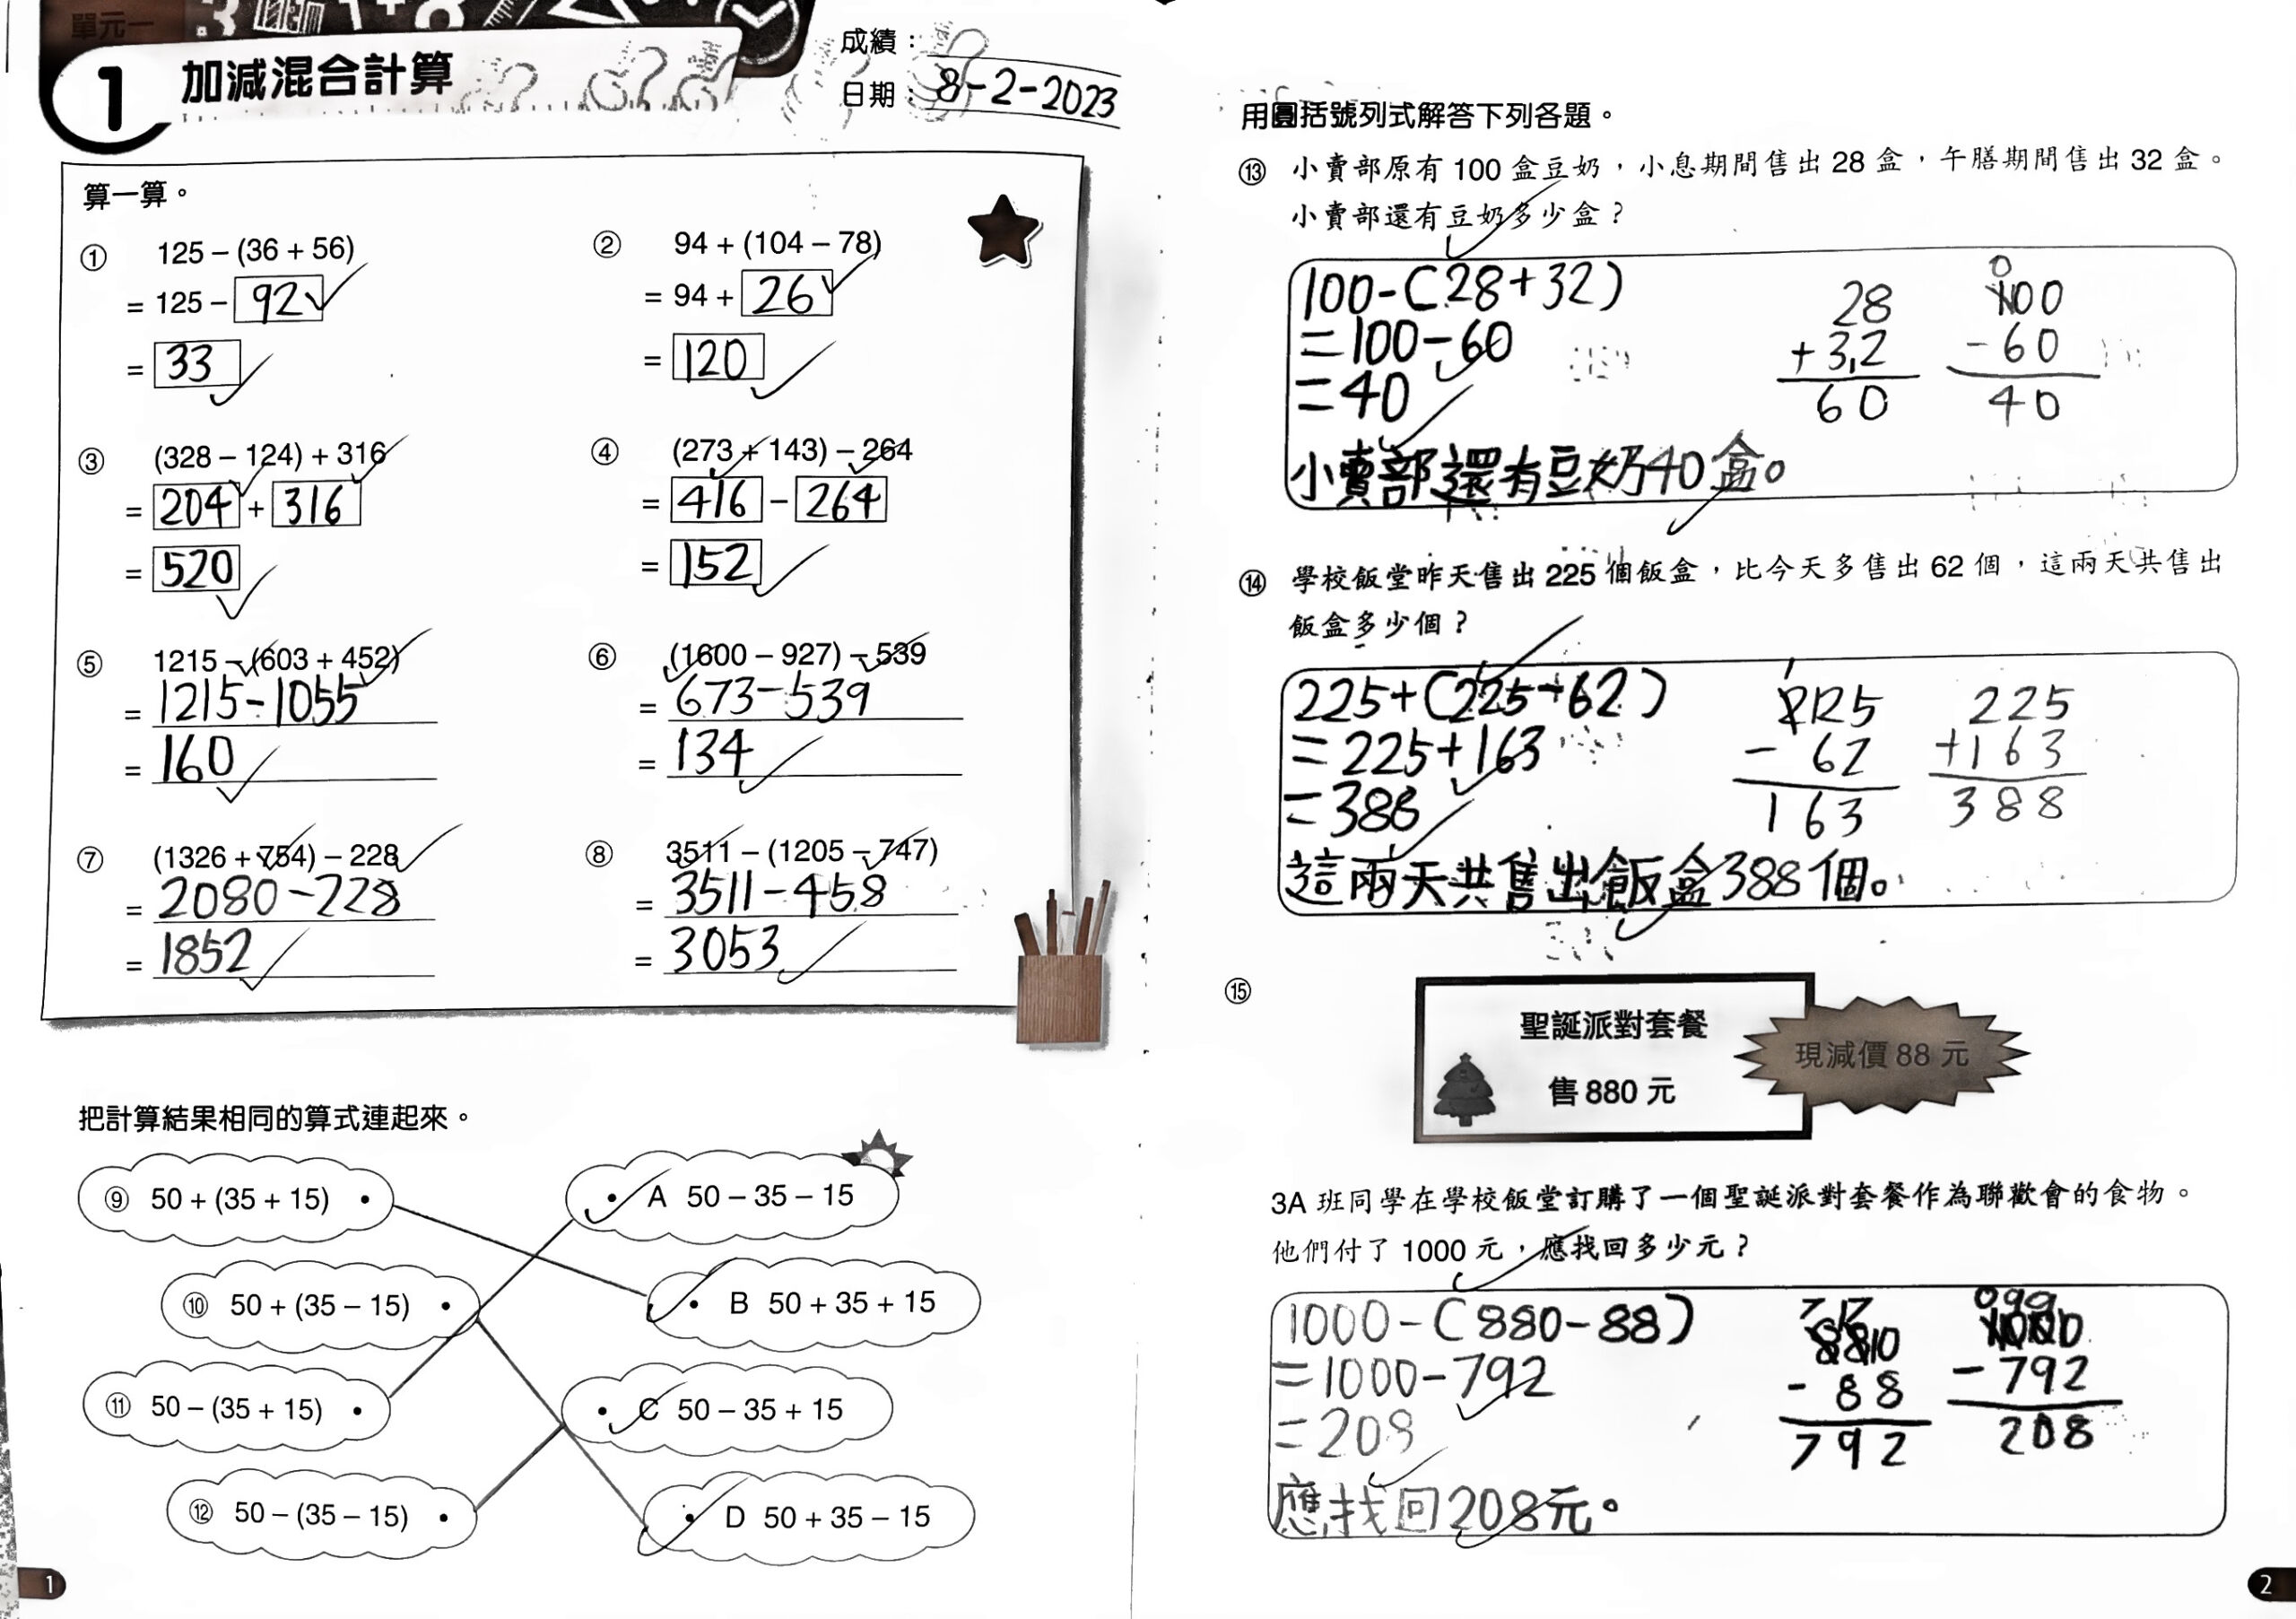 單元一
1 加減混合計算
成績：
日期：8-2-2023
算一算。
① 125 – (36 + 56)
= 125 – 92
= 33
② 94 + (104 – 78)
= 94 + 26
= 120
③ (328 – 124) + 316
= 204 + 316
= 520
④ (273 + 143) – 264
= 416 – 264
= 152
⑤ 1215 – (603 + 452)
= 1215-1055
= 160
⑥ (1600 – 927) – 539
= 673-539
= 134
⑦ (1326 + 754) – 228
= 2080-228
= 1852
⑧ 3511 – (1205 – 747)
= 3511-458
= 3053
把計算結果相同的算式連起來。
⑨ 50 + (35 + 15)
A 50 – 35 – 15
⑩ 50 + (35 – 15)
B 50 + 35 + 15
⑪ 50 – (35 + 15)
C 50 – 35 + 15
⑫ 50 – (35 – 15)
D 50 + 35 – 15
1
用圓括號列式解答下列各題。
⑬ 小賣部原有 100 盒豆奶，小息期間售出 28 盒，午膳期間售出 32 盒。
小賣部還有豆奶多少盒？
100-(28+32)
=100-60
=40
小賣部還有豆奶40盒。
28
+32
60
100
-60
40
⑭ 學校飯堂昨天售出 225 個飯盒，比今天多售出 62 個，這兩天共售出
飯盒多少個？
225+(225-62)
=225+163
=388
這兩天共售出飯盒388個。
225
- 62
163
225
+163
388
⑮
聖誕派對套餐
售 880 元
現減價 88 元
3A 班同學在學校飯堂訂購了一個聖誕派對套餐作為聯歡會的食物。
他們付了 1000 元，應找回多少元？
1000-(880-88)
=1000-792
=208
應找回208元。
880
- 88
792
1000
-792
208
2